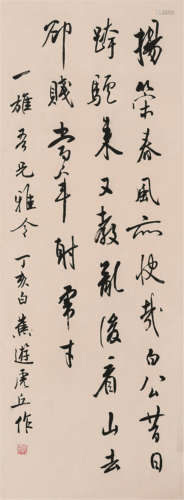 揚策春風亦快哉白公昔日
跨驢来又教亂後看山去
卻賤當年射虎才
一雄吾兄雅令丁亥白蕉遊虎丘作